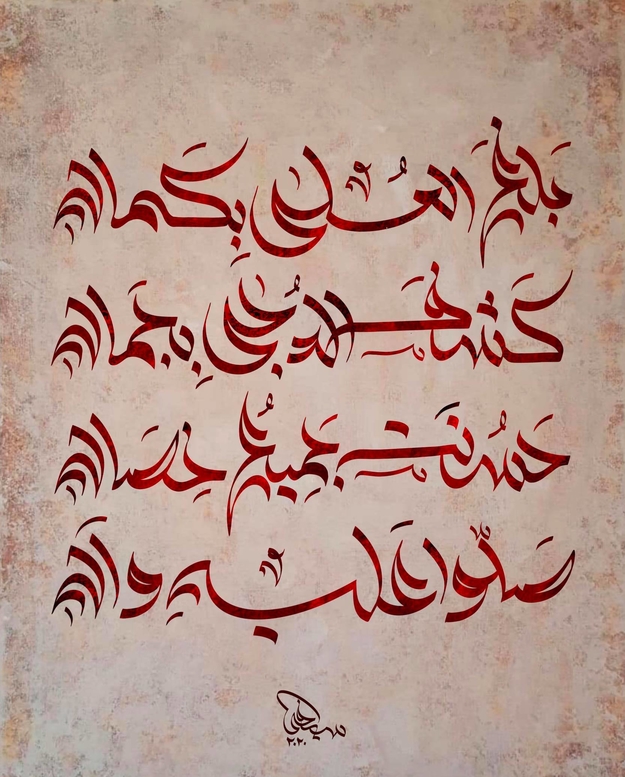 بَلَغَ العُلى بِكَمالِهِ
كَشَفَ الدُجى بِجَمالِهِ
حَسُنَت جَميعُ خِصالِهِ
صَلّوا عَلَيهِ وَآلِهِ
٢٠٢٠